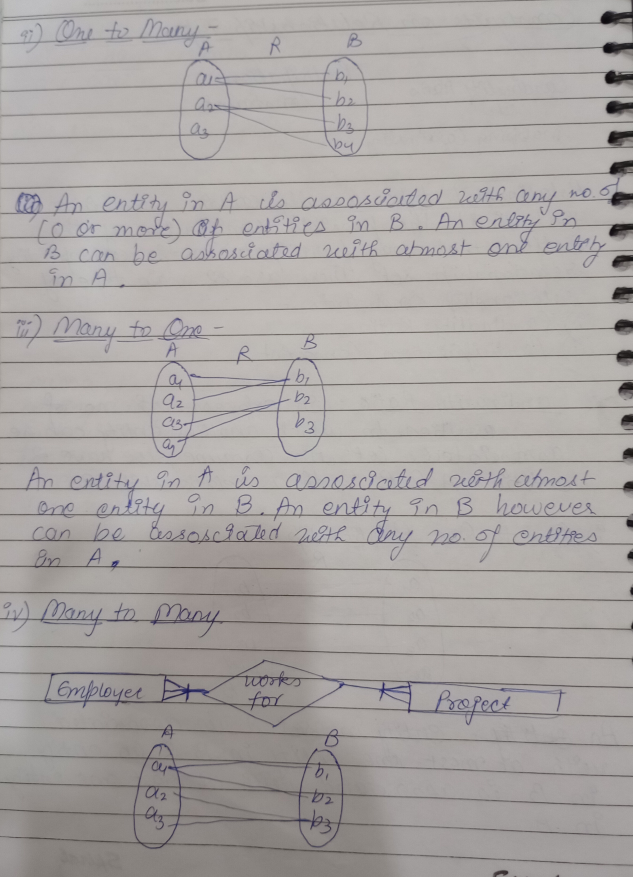 ii) One to Many -
A R B
a1 b1
a2 b2
a3 b3
b4
An entity in A is assosciated with any no. of
(0 or more) of entities in B. An entity in
B can be assosciated with atmost one entity
in A.
iii) Many to One -
A R B
a1 b1
a2 b2
a3 b3
a4
An entity in A is assosciated with atmost
one entity in B. An entity in B however
can be assosciated with any no. of entities
in A.
iv) Many to Many.
Employee works for Project
A B
a1 b1
a2 b2
a3 b3